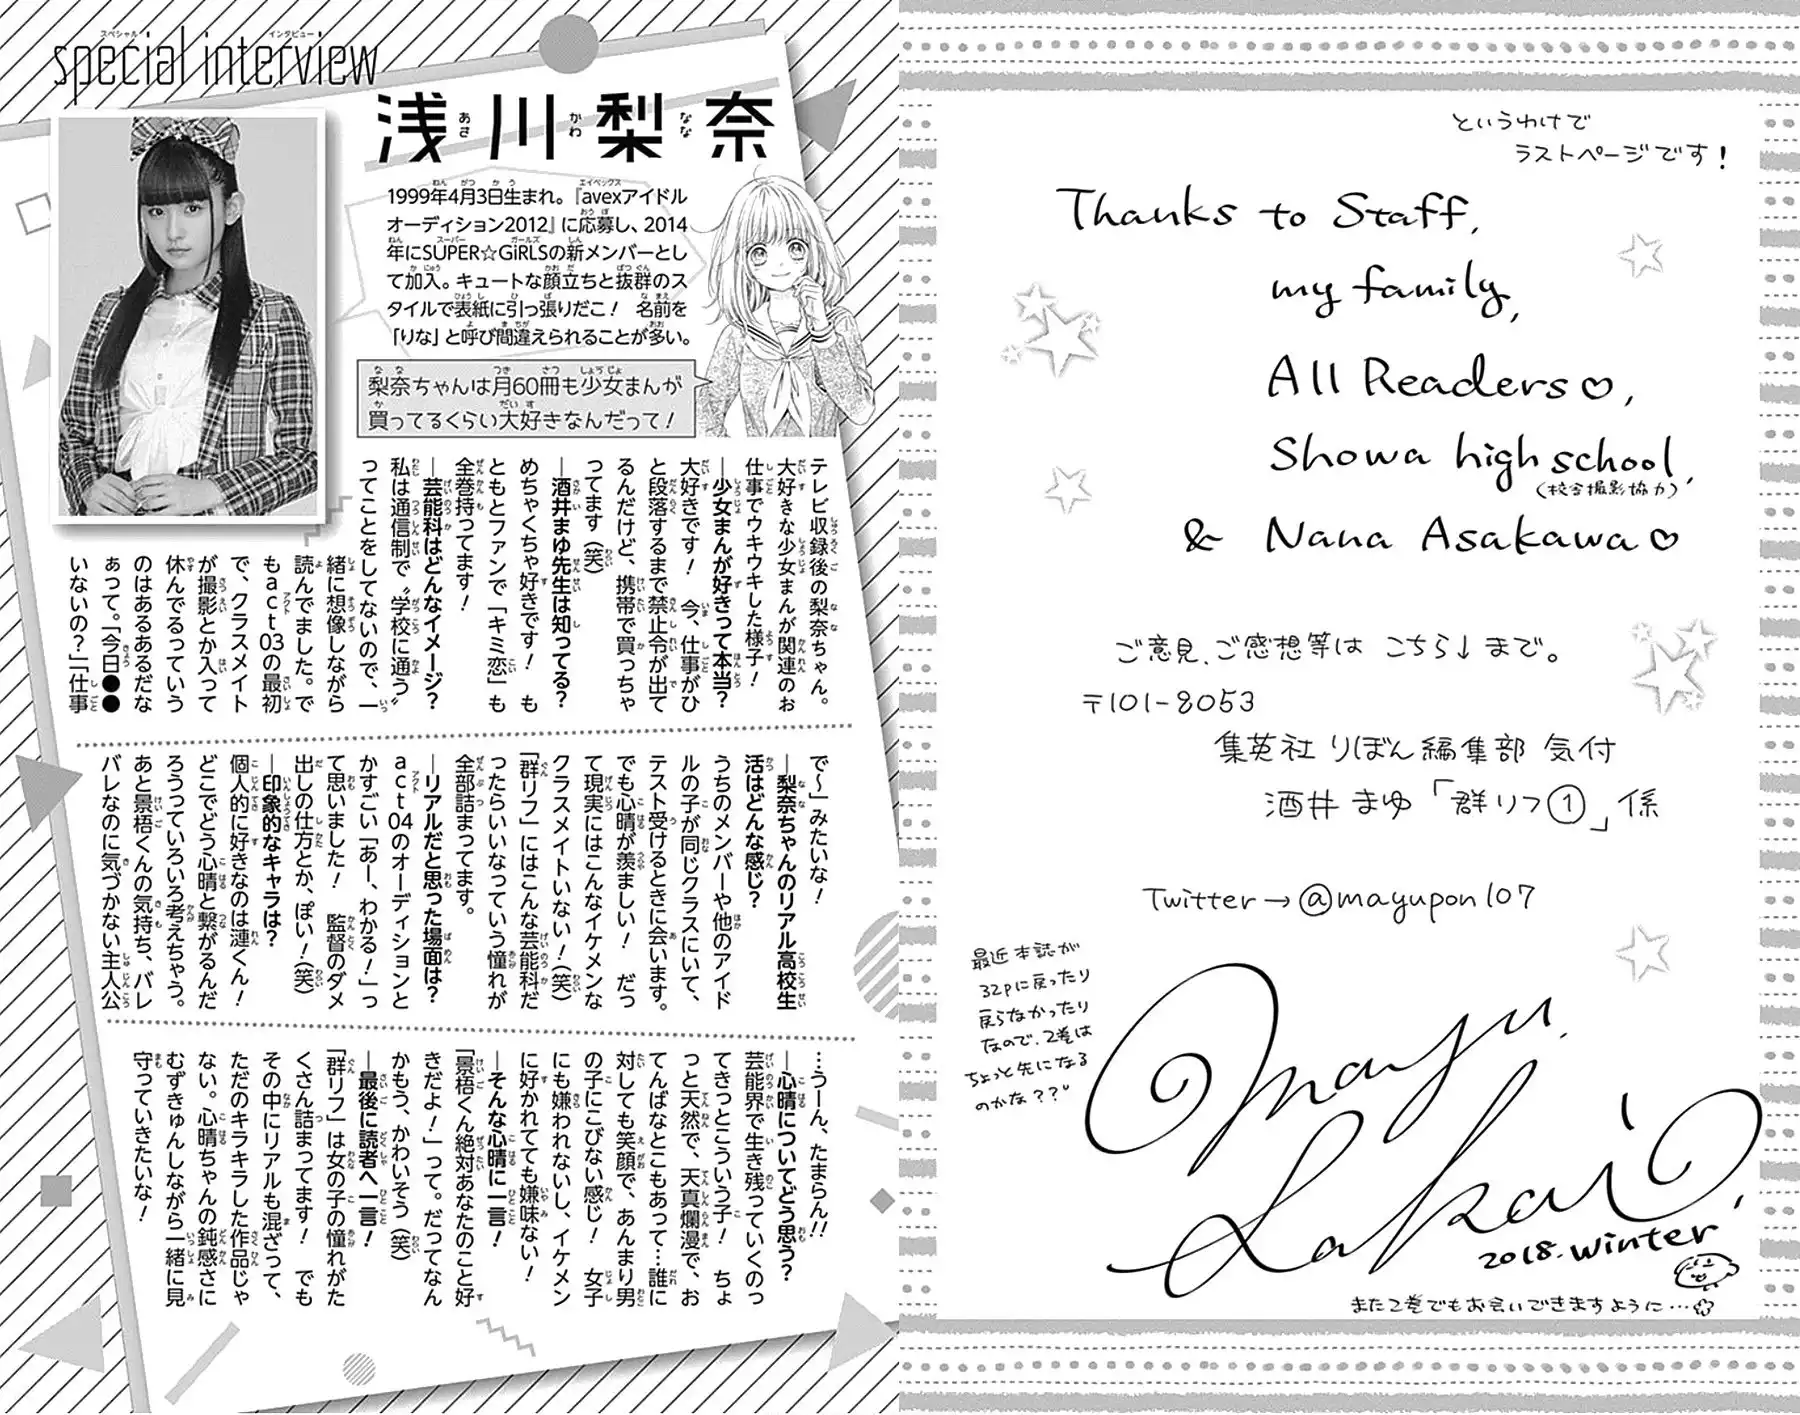 special interview
スペシャル インタビュー
浅川梨奈
あさ かわ なな
1999年4月3日生まれ。『avexアイドル
オーディション2012』に応募し、2014
年にSUPER☆GiRLSの新メンバーとし
て加入。キュートな顔立ちと抜群のス
タイルで表紙に引っ張りだこ! 名前を
「りな」と呼び間違えられることが多い。
梨奈ちゃんは月60冊も少女まんが
買ってるくらい大好きなんだって!
テレビ収録後の梨奈ちゃん。
大好きな少女まんが関連のお
仕事でウキウキした様子!
―少女まんが好きって本当?
大好きです! 今、仕事がひ
と段落するまで禁止令が出て
るんだけど、携帯で買っちゃ
ってます(笑)
―酒井まゆ先生は知ってる?
めちゃくちゃ好きです! も
ともとファンで「キミ恋」も
全巻持ってます!
―芸能科はどんなイメージ?
私は通信制で〝学校に通う〟
ってことをしてないので、一
緒に想像しながら
読んでました。で
もact03の最初
で、クラスメイト
が撮影とか入って
休んでるっていう
のはあるあるだな
あって。「今日●●
いないの?」「仕事
で～」みたいな!
―梨奈ちゃんのリアル高校生
活はどんな感じ?
うちのメンバーや他のアイド
ルの子が同じクラスにいて、
テスト受けるときに会います。
でも心晴が羨ましい! だっ
て現実にはこんなイケメンな
クラスメイトいない!(笑)
「群リフ」にはこんな芸能科だ
ったらいいなっていう憧れが
全部詰まってます。
―リアルだと思った場面は?
act04のオーディションと
かすごい「あー、わかる!」っ
て思いました! 監督のダメ
出しの仕方とか、ぽい!(笑)
―印象的なキャラは?
個人的に好きなのは漣くん!
どこでどう心晴と繋がるんだ
ろうっていろいろ考えちゃう。
あと景悟くんの気持ち、バレ
バレなのに気づかない主人公
…うーん、たまらん!!
―心晴についてどう思う?
芸能界で生き残っていくのっ
てきっとこういう子! ちょ
っと天然で、天真爛漫で、お
てんばなとこもあって…誰に
対しても笑顔で、あんまり男
の子にこびない感じ! 女子
にも嫌われないし、イケメン
に好かれてても嫌味ない!
―そんな心晴に一言!
「景悟くん絶対あなたのこと好
きだよ!」って。だってなん
かもう、かわいそう(笑)
―最後に読者へ一言!
「群リフ」は女の子の憧れがた
くさん詰まってます! でも
その中にリアルも混ざって、
ただのキラキラした作品じゃ
ない。心晴ちゃんの鈍感さに
むずきゅんしながら一緒に見
守っていきたいな!
というわけで
ラストページです!
Thanks to Staff,
my family,
All Readers♡,
Showa high school,
(校舎撮影協力)
& Nana Asakawa♡
ご意見、ご感想等は こちら↓まで。
〒101-8053
集英社 りぼん編集部 気付
酒井 まゆ「群リフ①」係
Twitter→@mayupon107
最近本誌が
32pに戻ったり
戻らなかったり
なので、2巻は
ちょっと先になる
のかな??
Mayu.
Sakai
2018.winter
また2巻でもお会いできますように…